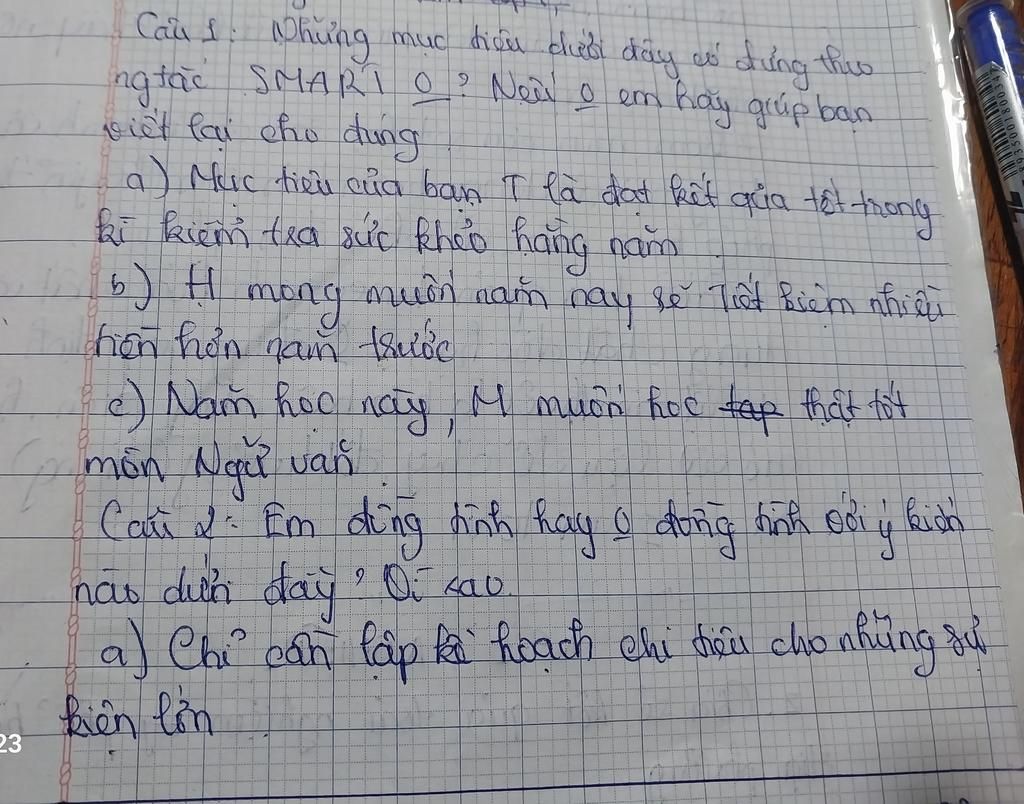 Câu 1: Những mục tiêu dưới đây có đúng theo
ng tắc SMART O? Nếu O em hãy giúp bạn
viết lại cho đúng
a) Mục tiêu của bạn T là đạt kết qủa tốt trong
kì kiểm tra sức khỏe hằng năm
b) H mong muốn năm nay sẽ Tiết kiệm nhiều
tiền hơn năm trước
c) Năm học này, M muốn học tap thật tốt
môn Ngữ văn
Câu 2: Em đồng tình hay O đồng tình với ý kiến
nào dưới đây? Vì sao
a) Chỉ cần lập kế hoạch chi tiêu cho những sự
kiện lớn
23